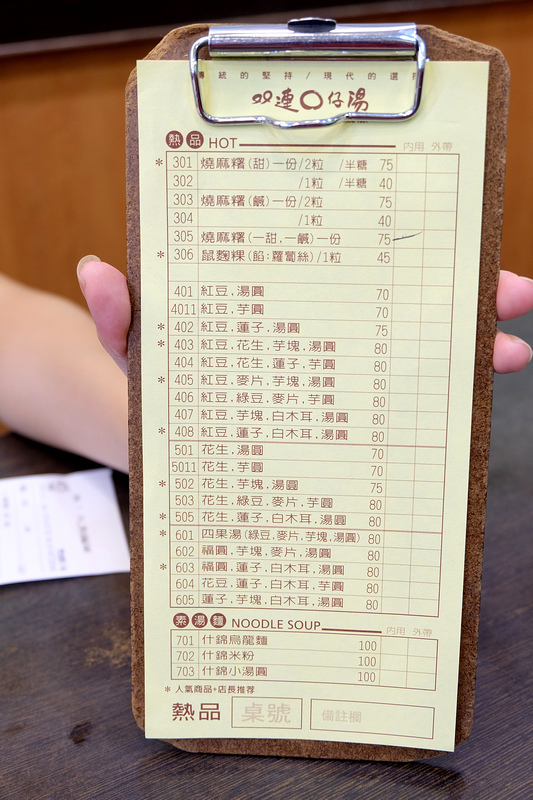 統的堅持/現代的選
双連〇仔湯
熱品 HOT 內用 外帶
* 301 燒麻糬(甜)一份/2粒 /半糖 75
302 /1粒 /半糖 40
303 燒麻糬(鹹)一份/2粒 75
304 /1粒 40
305 燒麻糬(一甜.一鹹)一份 75
* 306 鼠麴粿(餡:蘿蔔絲)/1粒 45
401 紅豆.湯圓 70
4011 紅豆.芋圓 70
* 402 紅豆.蓮子.湯圓 75
* 403 紅豆.花生.芋塊.湯圓 80
404 紅豆.花生.蓮子.芋圓 80
* 405 紅豆.麥片.芋塊.湯圓 80
406 紅豆.綠豆.麥片.芋圓 80
407 紅豆.芋塊.白木耳.湯圓 80
* 408 紅豆.蓮子.白木耳.湯圓 80
501 花生.湯圓 70
5011 花生.芋圓 70
* 502 花生.芋塊.湯圓 75
503 花生.綠豆.麥片.芋圓 80
* 505 花生.蓮子.白木耳.湯圓 80
* 601 四果湯(綠豆.麥片.芋塊.湯圓) 80
602 福圓.芋塊.麥片.湯圓 80
* 603 福圓.蓮子.白木耳.湯圓 80
604 花豆.蓮子.白木耳.芋圓 80
605 蓮子.芋塊.白木耳.湯圓 80
素湯麵 NOODLE SOUP 內用 外帶
701 什錦烏龍麵 100
702 什錦米粉 100
703 什錦小湯圓 100
* 人氣商品+店長推荐
熱品 桌號 備註欄